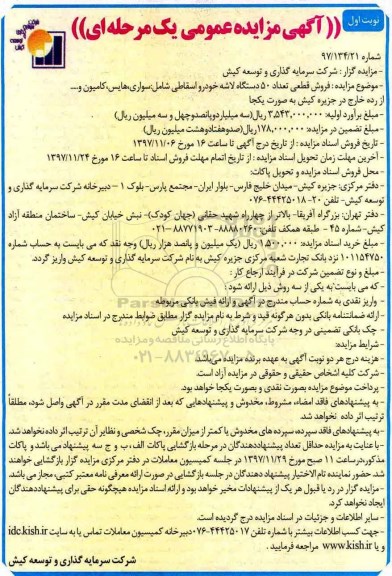 نوبت اول
((آگهی مزایده عمومی یک مرحله ای))
شماره ۹۷/۱۳۴/۲۱
- مزایده گزار : شرکت سرمایه گذاری و توسعه کیش
- موضوع مزایده : فروش قطعی تعداد ۵۰ دستگاه لاشه خودرو اسقاطی شامل:سواری،هایس،کامیون و...
از رده خارج در جزیره کیش به صورت یکجا
- مبلغ برآورد اولیه: ۳,۵۴۳,۰۰۰,۰۰۰ ریال(سه میلیاردوپانصدوچهل و سه میلیون ریال)
- مبلغ تضمین در مزایده: ۱۷۸,۰۰۰,۰۰۰ ریال(صدوهفتادوهشت میلیون ریال)
- تاریخ فروش اسناد مزایده : از تاریخ درج آگهی تا ساعت ۱۶ مورخ ۱۳۹۷/۱۱/۰۶
- آخرین مهلت زمان تحویل اسناد مزایده : از تاریخ اتمام مهلت فروش اسناد تا ساعت ۱۶ مورخ ۱۳۹۷/۱۱/۲۴
- محل فروش اسناد مزایده و تحویل پاکات:
- دفتر مرکزی: جزیره کیش- میدان خلیج فارس- بلوار ایران- مجتمع پارس- بلوک ۱ - دبیرخانه شرکت سرمایه گذاری و
توسعه کیش- تلفن ۲۰- ۴۴۴۲۵۰۱۸-۰۷۶
- دفتر تهران: بزرگراه آفریقا- بالاتر از چهارراه شهید حقانی (جهان کودک)- نبش خیابان کیش- ساختمان منطقه آزاد
کیش- شماره ۴۵ - طبقه همکف تلفن: ۸۸۸۸۰۲۶۰- ۸۸۷۷۱۹۰۳-۰۲۱
- مبلغ خرید اسناد مزایده: ۱,۵۰۰,۰۰۰ ریال (یک میلیون و پانصد هزار ریال) وجه نقد که می بایست به حساب شماره
۱۰۱۱۵۴۷۵۰ نزد بانک تجارت شعبه مرکزی جزیره کیش به نام شرکت سرمایه گذاری و توسعه کیش واریز گردد.
- مبلغ و نوع تضمین شرکت در فرآیند ارجاع کار :
- که می بایست به یکی از سه روش ذیل ارائه شود :
- واریز نقدی به شماره حساب مندرج در آگهی و ارائه فیش بانکی مربوطه
- ارائه ضمانتنامه بانکی بدون هرگونه قید و شرط به نام مزایده گزار مطابق ضوابط مندرج در اسناد مزایده
- چک بانکی تضمینی در وجه شرکت سرمایه گذاری و توسعه کیش
- شرایط مزایده:
- هزینه درج هر دو نوبت آگهی به عهده برنده مزایده می باشد.
- شرکت کلیه اشخاص حقیقی و حقوقی در مزایده آزاد است.
- پرداخت موضوع مزایده بصورت نقدی و بصورت یکجا خواهد بود.
- به پیشنهادهای فاقد امضاء، مشروط، مخدوش و پیشنهادهایی که بعد از انقضای مدت مقرر در آگهی واصل شود، مطلقاً
ترتیب اثر داده نخواهد شد.
- به پیشنهادهای فاقد سپرده، سپرده های مخدوش یا کمتر از میزان مقرر، چک شخصی و نظایر آن ترتیب اثر داده نخواهد شد.
- با عنایت به مزایده حداقل تعداد پیشنهاددهندگان در مرحله بازگشایی پاکات الف، ب و ج سه پیشنهاد می باشد و پاکات
مذکور،درساعت ۱۱ صبح مورخ ۱۳۹۷/۱۱/۲۹ در جلسه کمیسیون معاملات در دفتر مرکزی مزایده گزار بازگشایی خواهند
شد. حضور نماینده تام الاختیار پیشنهاد دهندگان در جلسه بازگشایی در صورت ارائه معرفی نامه معتبر کتبی، مجاز می باشد.
- مزایده گزار در رد یا قبول هر یک از پیشنهادات مخیر خواهد بود و ارائه اسناد مزایده هیچگونه حقی برای پیشنهاددهندگان
ایجاد نخواهد کرد.
- سایر اطلاعات و جزئیات در اسناد مزایده درج گردیده است.
-جهت کسب اطلاعات بیشتر با شماره تلفن ۴۴۴۲۵۰۱۷-۰۷۶ دبیرخانه کمیسیون معاملات تماس یا به سایت idc.kish.ir
و یا www.kish.ir مراجعه فرمایید.
شرکت سرمایه گذاری و توسعه کیش